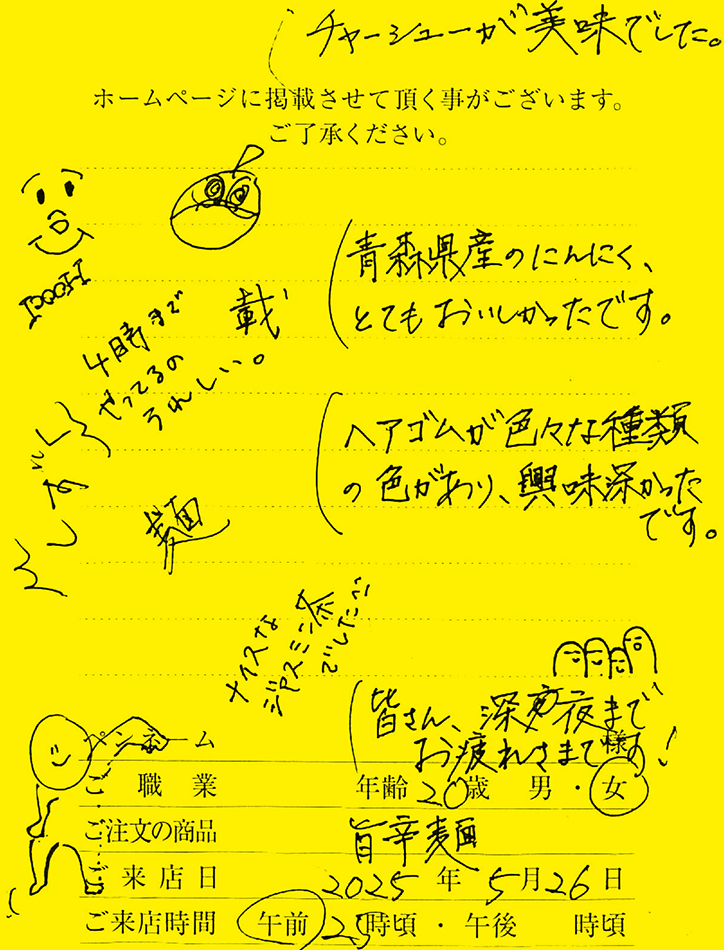 チャーシューが美味でした。
ホームページに掲載させて頂く事がございます。
ご了承ください。
青森県産のにんにく、
とてもおいしかったです。
載
4時まで
やってるの
うれしい。
ヘアゴムが色々な種類
の色があり、興味深かった
です。
麺
ナイスな
ジャスミン茶
でした
皆さん、深夜まで
お疲れさまです!
ペンネーム 様
ご職業 年齢 20歳 男・女
ご注文の商品 旨辛麺
ご来店日 2025年 5月26日
ご来店時間 午前 25時頃・午後 時頃